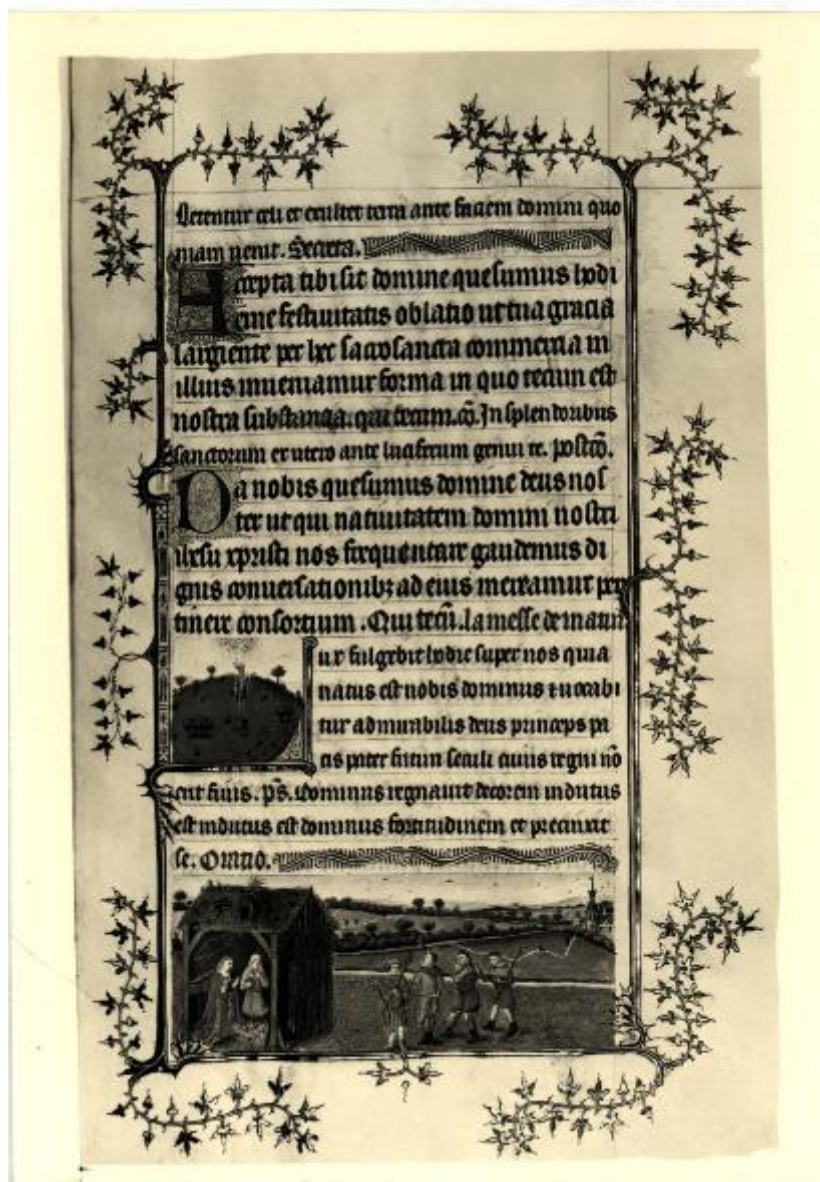 Letentur celi et exultet terra ante faciem domini quo
niam venit. Secreta.
Accepta tibi sit domine quesumus hodi
erne festivitatis oblatio ut tua gracia
largiente per hec sacrosancta commercia in
illius inveniamur forma in quo tecum est
nostra substancia. qui tecum. cō. In splendoribus
sanctorum ex utero ante luciferum genui te. postcō.
Da nobis quesumus domine deus nos
ter ut qui nativitatem domini nostri
ihesu xpristi nos frequentare gaudemus di
gnis conversationibꝫ ad eius mereamur per
tinere consortium. Qui tecū. la messe de matin
Lux fulgebit hodie super nos quia
natus est nobis dominus et vocabi
tur admirabilis deus princeps pa
cis pater futuri seculi cuius regni nō
erit finis. ps̄. Dominus regnavit decorem indutus
est indutus est dominus fortitudinem et precinxit
se. Oratio.